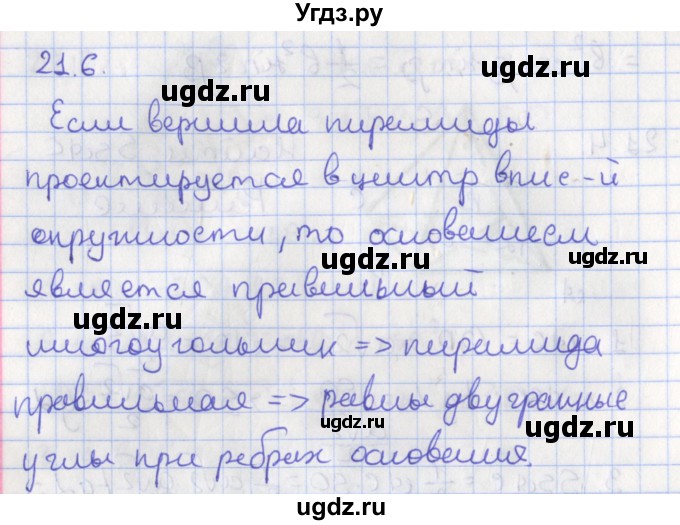 Угдз.ру
21.6.
ugdz.ru
ugdz.ru
Если вершина пирамиды
ugdz.ru
проектируется в центр впис-й
ugdz.ru
окружности, то основанием
ugdz.ru
является правильный
ugdz.ru
ugdz.ru
многоугольник => пирамида
ugdz.ru
правильная => равны двугранные
ugdz.ru
углы при ребрах основания.
ugdz.ru
ugdz.ru